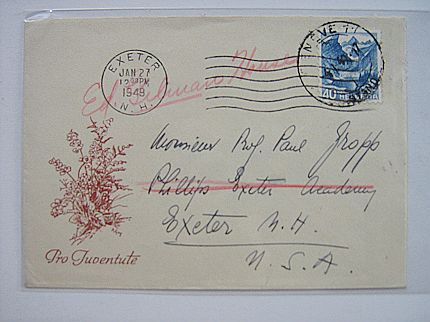 EXETER
JAN 27
1949
N.H.
VEVEY
40 HELVETIA
Ed Gilman House
Monsieur Prof. Paul Gropp
Phillips Exeter Academy
Exeter N.H.
U.S.A.
Pro Juventute